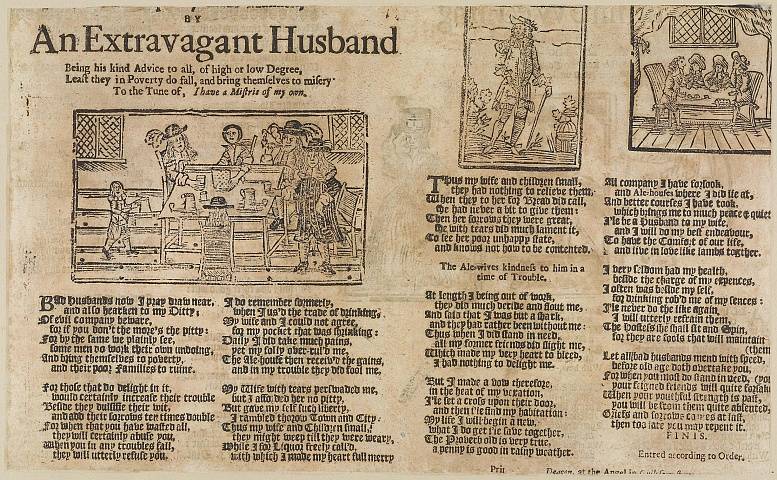 BY
An Extravagant Husband
Being his kind Advice to all, of high or low Degree,
Least they in Poverty do fall, and bring themselves to misery
To the Tune of, I have a Mistris of my own.
Bad Husbands now I pray draw near,
and also hearken to my Ditty,
Of evil company beware,
for if you don't the more's the pitty:
For by the same we plainly see,
some men do work their own undoing,
And bring themselves to poverty,
and their poor Families to ruine.
For those that do delight in it,
would certainly increase their trouble
Beside they dullifie their wit,
and add their sorrows ten times double
For when that you have wasted all,
they will certainly abuse you,
When you in any troubles fall,
they will utterly refuse you.
I do remember formerly,
when I us'd the trade of drinking,
My wife and I could not agree,
for my pocket that was shrinking:
Daily I did take much pains,
yet my folly over-rul'd me,
The Ale-house then receiv'd the gains,
and in my trouble they did fool me.
My Wife with tears perswaded me,
but I afforded her no pitty,
But gave my self such liberty,
I rambled thorow Town and City.
Thus my wife and Children small,
they might weep till they were weary,
While I for Liquor freely call'd,
with which I made my heart full merry
Thus my wife and children small,
they had nothing to relieve them,
When they to her for Bread did call,
she had never a bit to give them:
Then her sorrows they were great,
she with tears did much lament it,
To see her poor unhappy state,
and knows not how to be contented.
The Ale-wives kindness to him in a
time of Trouble.
At length I being out of work,
they did much deride and flout me,
And said that I was but a shark
and they had rather been without me:
Thus when I did stand in need,
all my former friends did slight me,
Which made my very heart to bleed,
I had nothing to delight me.
But I made a vow therefore,
in the heat of my vexation,
I'le set a cross upon their door,
and then I'le find my habitation:
My life I will begin a new,
what I do get I'le save together,
The Proverb old is very true,
a penny is good in rainy weather.
All company I have forsook,
and Ale-houses where I did lie at,
And better courses I have took,
which brings me to much peace & quiet
I'le be a Husband to my wife,
and I will do my best endeavour,
To have the Comfort of our life,
and live in love like lambs together.
I very seldom had my health,
beside the charge of my expences,
I often was beside my self,
for drinking rob'd me of my sences:
I'le never do the like again,
I will utterly refrain them,
The Hostess she shall sit and Spin,
for they are fools that will maintain
(them
Let all bad husbands mend with speed,
before old age doth overtake you,
For when you most do stand in need,
your feigned friends will quite forsake
When your youthful strength is past,
you will be from them quite absented,
Griefs and sorrows comes at last,
then too late you may repent it.
FINIS.
Entred according to Order.
Prin
Deacon, at the Angel in